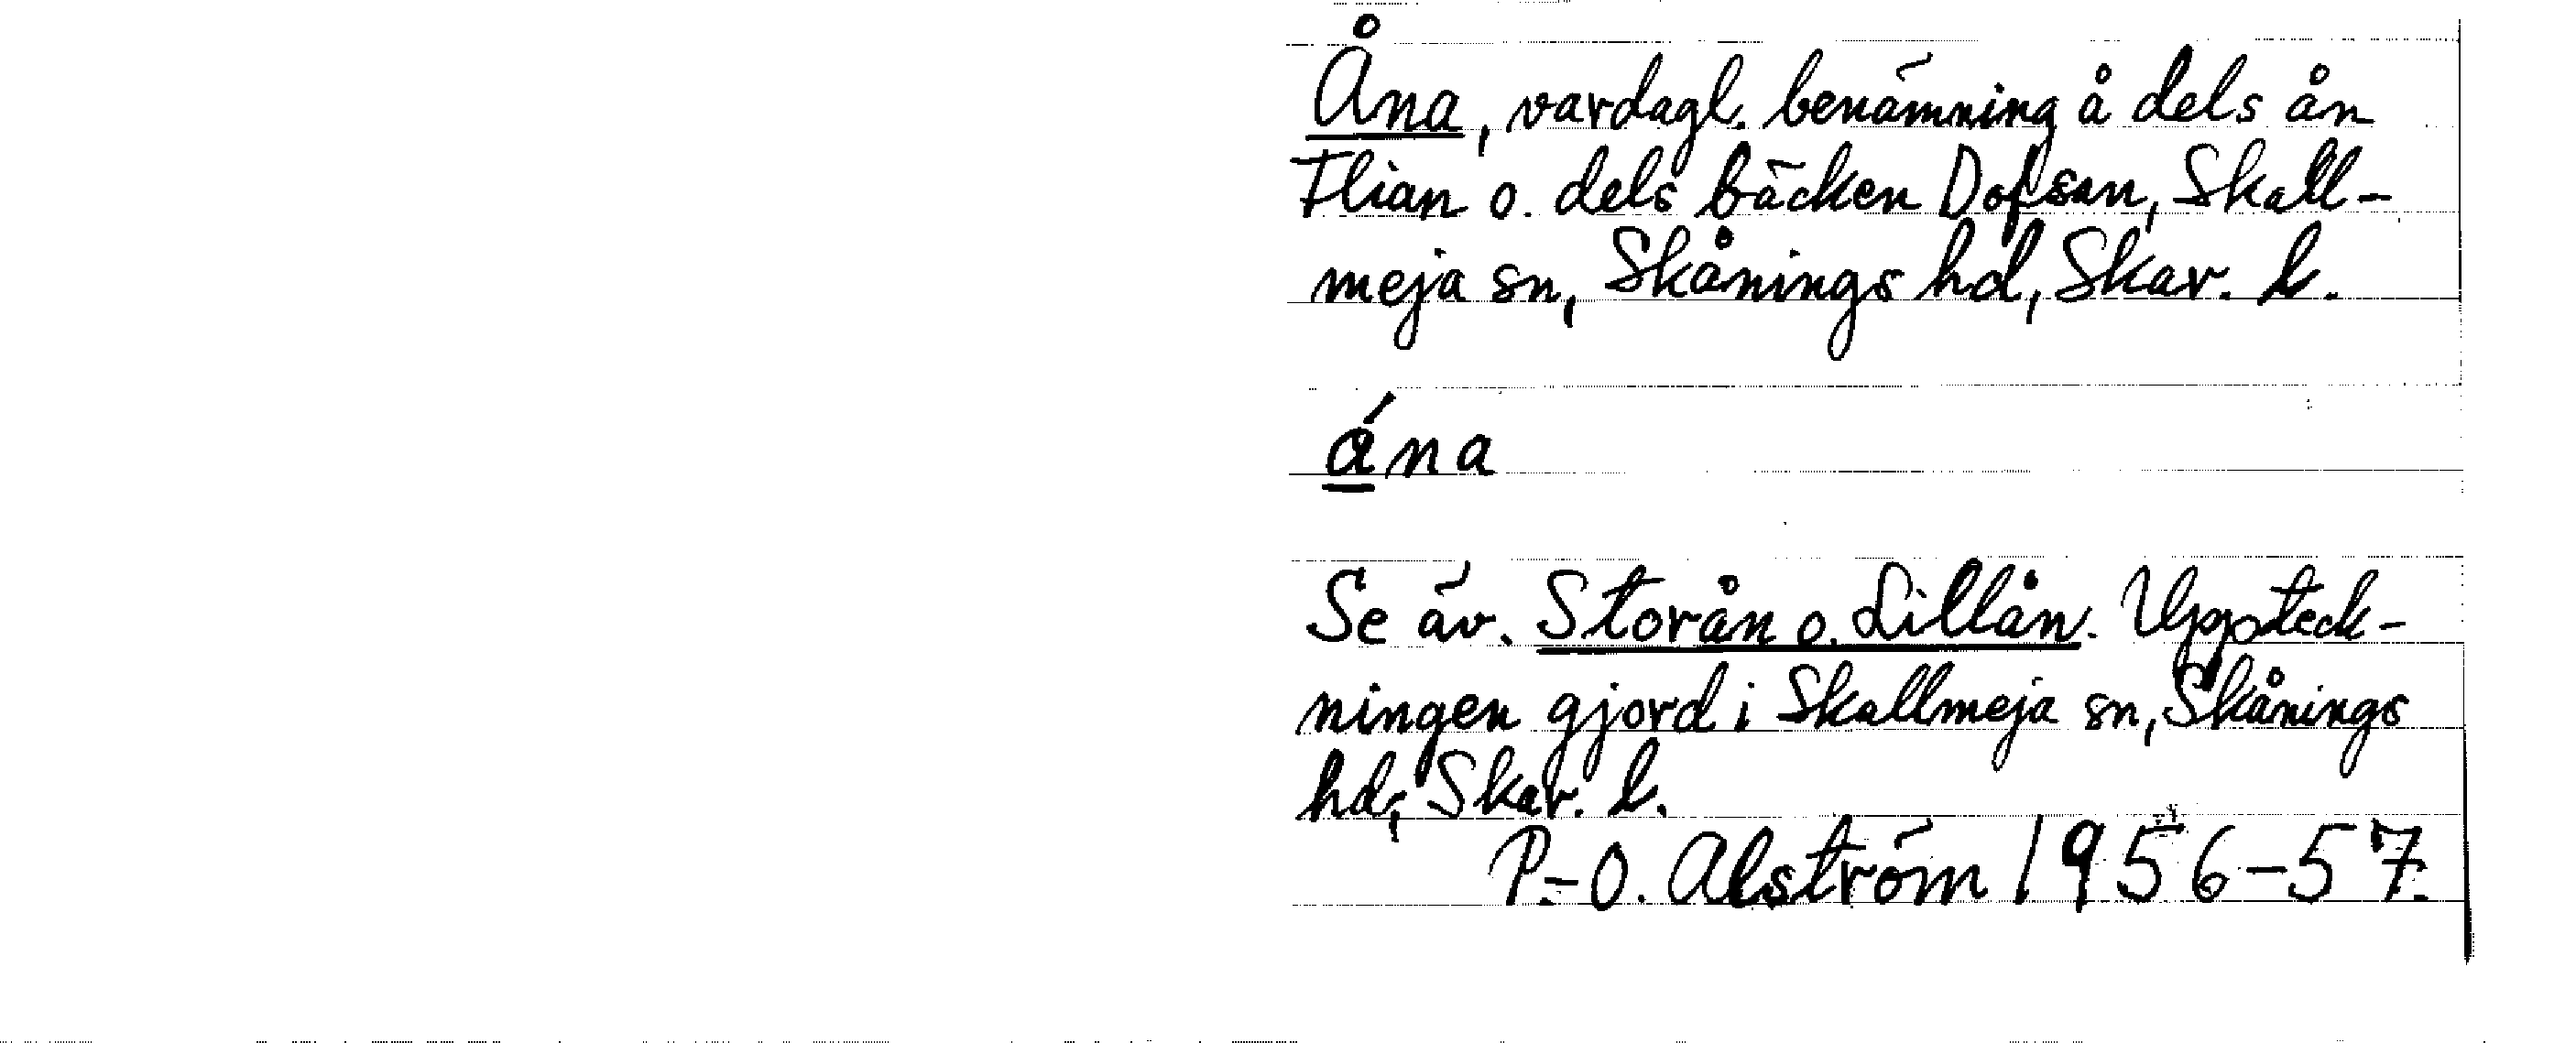 Åna, vardagl. benämning å dels ån
Flian o. dels bäcken Dofsan, Skall-
meja sn, Skånings hd, Skar. l.
ána
Se äv. Storån o. Lillån. Uppteck-
ningen gjord i Skallmeja sn, Skånings
hd, Skar. l.
P.-O. Alström 1956-57.